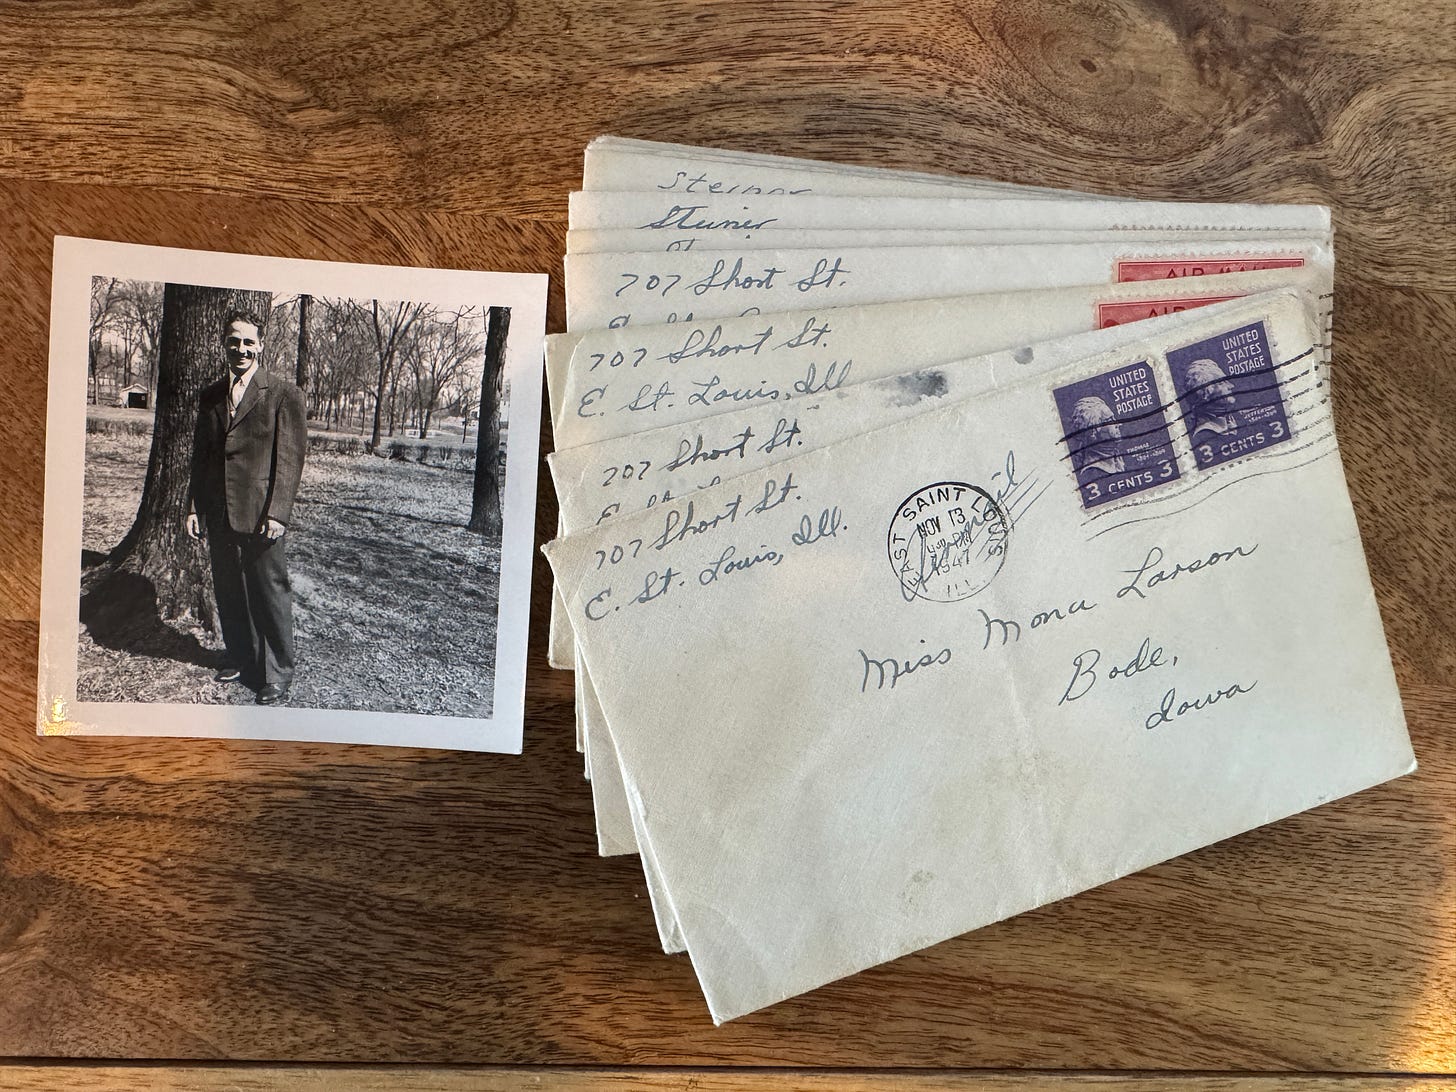 Steiner
707 Short St.
AIR MAIL
707 Short St.
E. St. Louis, Ill
707 Short St.
707 Short St.
E. St. Louis, Ill.
EAST SAINT LOUIS
NOV 13
PM
1947
ILL
Air Mail
UNITED
STATES
POSTAGE
THOMAS
3 CENTS 3
UNITED
STATES
POSTAGE
THOMAS
JEFFERSON
3 CENTS 3
Miss Mona Larson
Bode,
Iowa